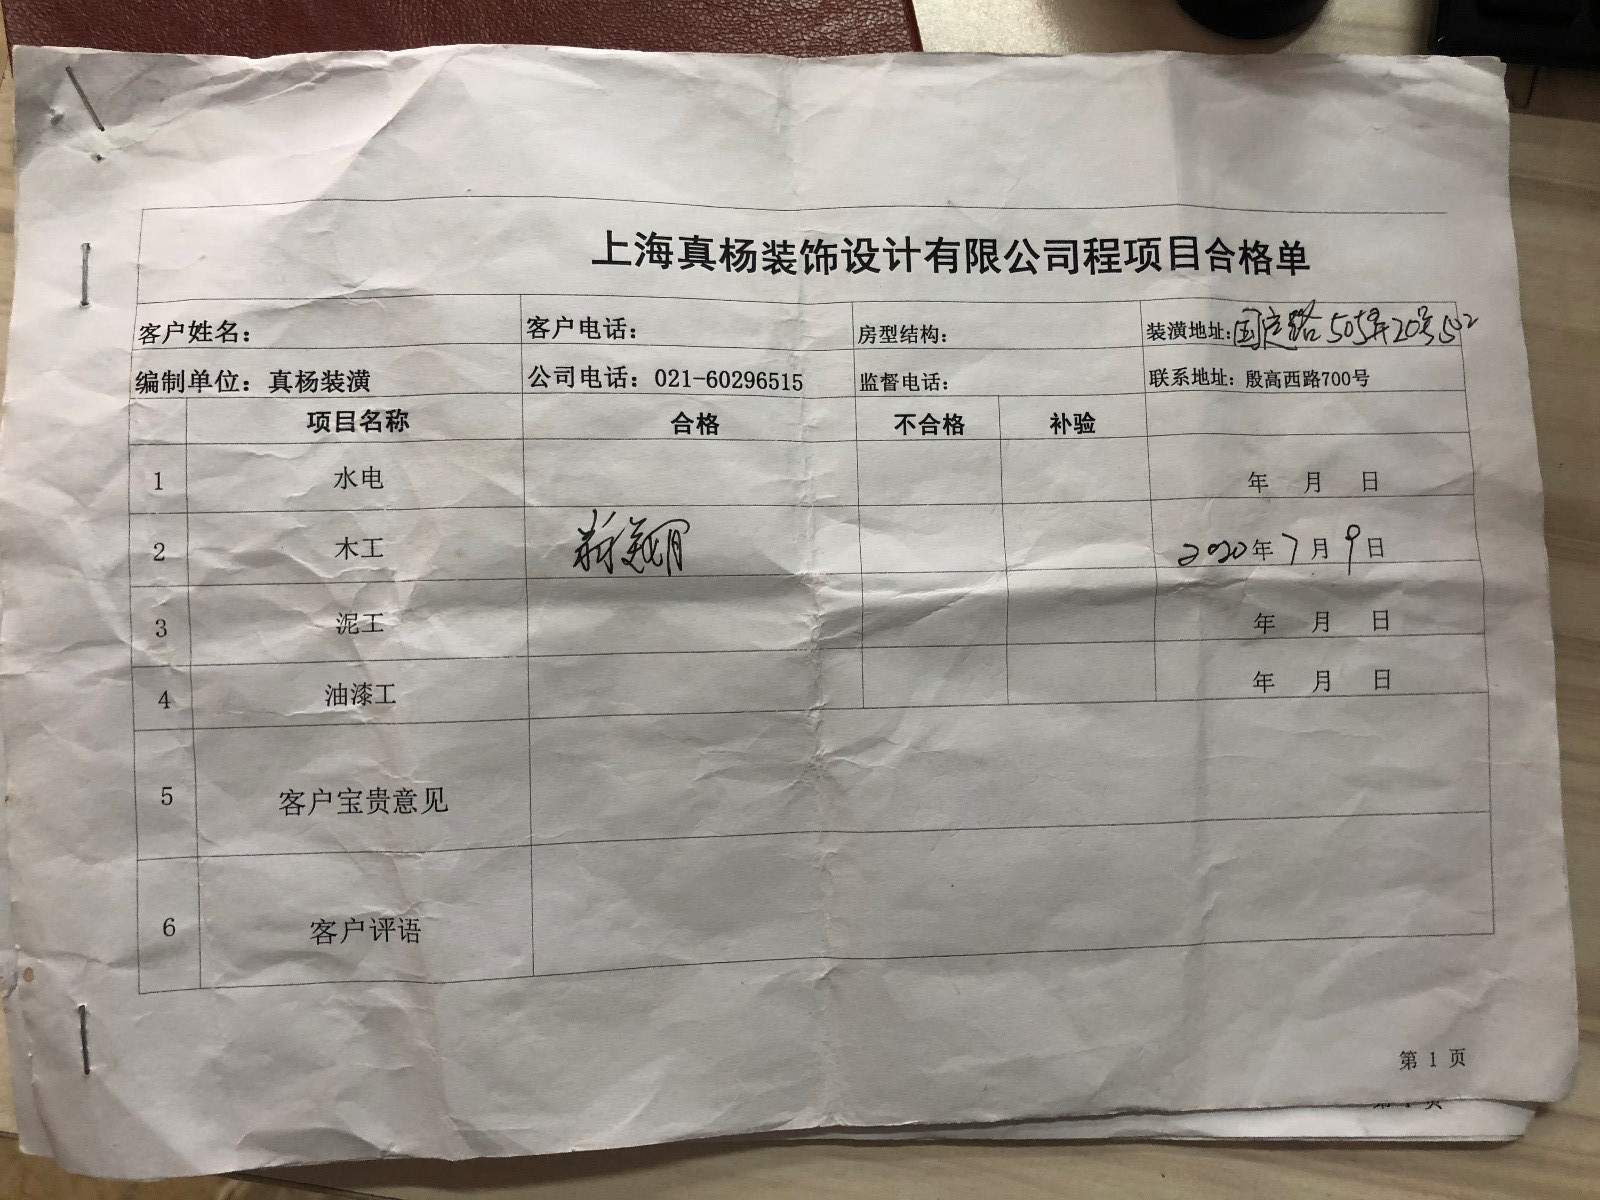 上海真杨装饰设计有限公司程项目合格单
客户姓名： 客户电话： 房型结构： 装潢地址：国定路505弄20号502
编制单位：真杨装潢 公司电话：021-60296515 监督电话： 联系地址：殷高西路700号
项目名称 合格 不合格 补验
1 水电 年 月 日
2 木工 2020年7月9日
3 泥工 年 月 日
4 油漆工 年 月 日
5 客户宝贵意见
6 客户评语
第 1 页